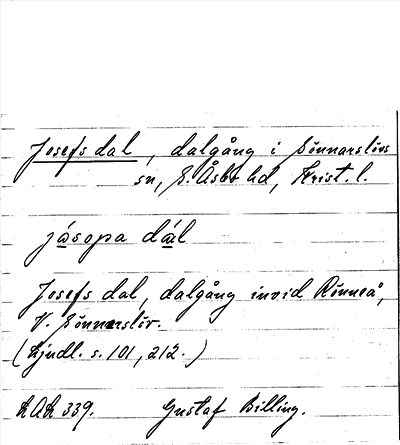 Josefs dal, dalgång i Sönnarslövs
sn, S. Åsbo hd, Krist. l.
jásopa dál
Josefs dal, dalgång invid Rönneå,
V. Sönnarslöv.
(Ljndl. s. 101, 212.)
LAL 339. Gustaf Billing.